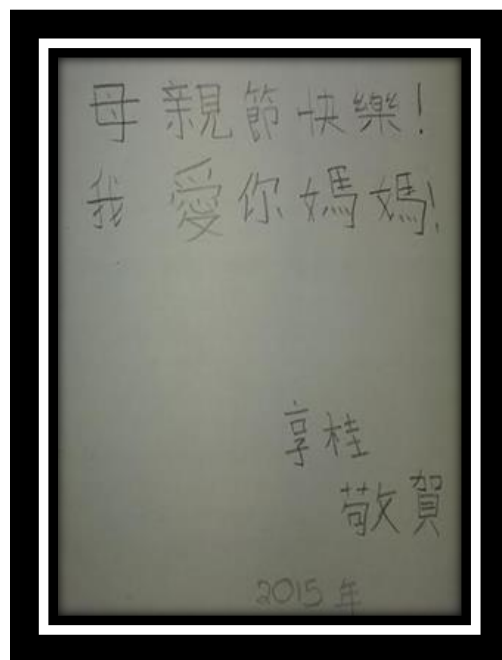 母親節快樂!
我愛你媽媽!
享桂
敬賀
2015年